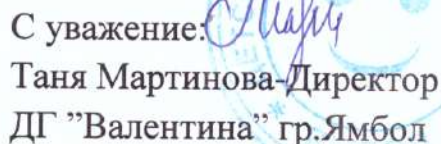 С уважение:
Таня Мартинова-Директор
ДГ ”Валентина” гр.Ямбол